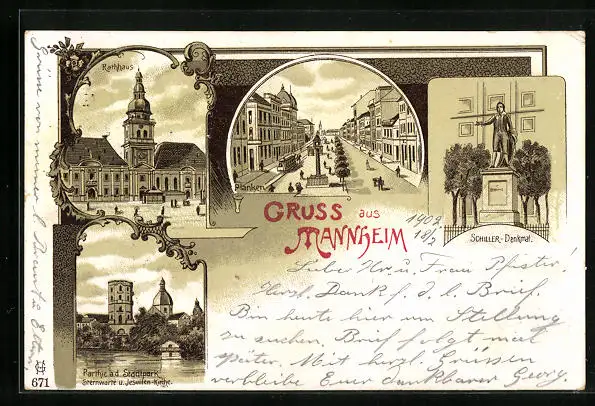 Rathhaus
Planken
GRUSS aus
MANNHEIM
SCHILLER-Denkmal.
Parthie a.d. Stadtpark
Sternwarte u. Jesuiten-Kirche.
671
1902
18/2
Lieber Hr. u. Frau Pfister!
Herzl. Dank f. d. l. Brief.
Bin heute hier um Stellung
zu suchen. Brief folgt
später. Mit herzl. Grüssen
verbleibe Euer dankbarer Georg.
Grüsse von meiner l.